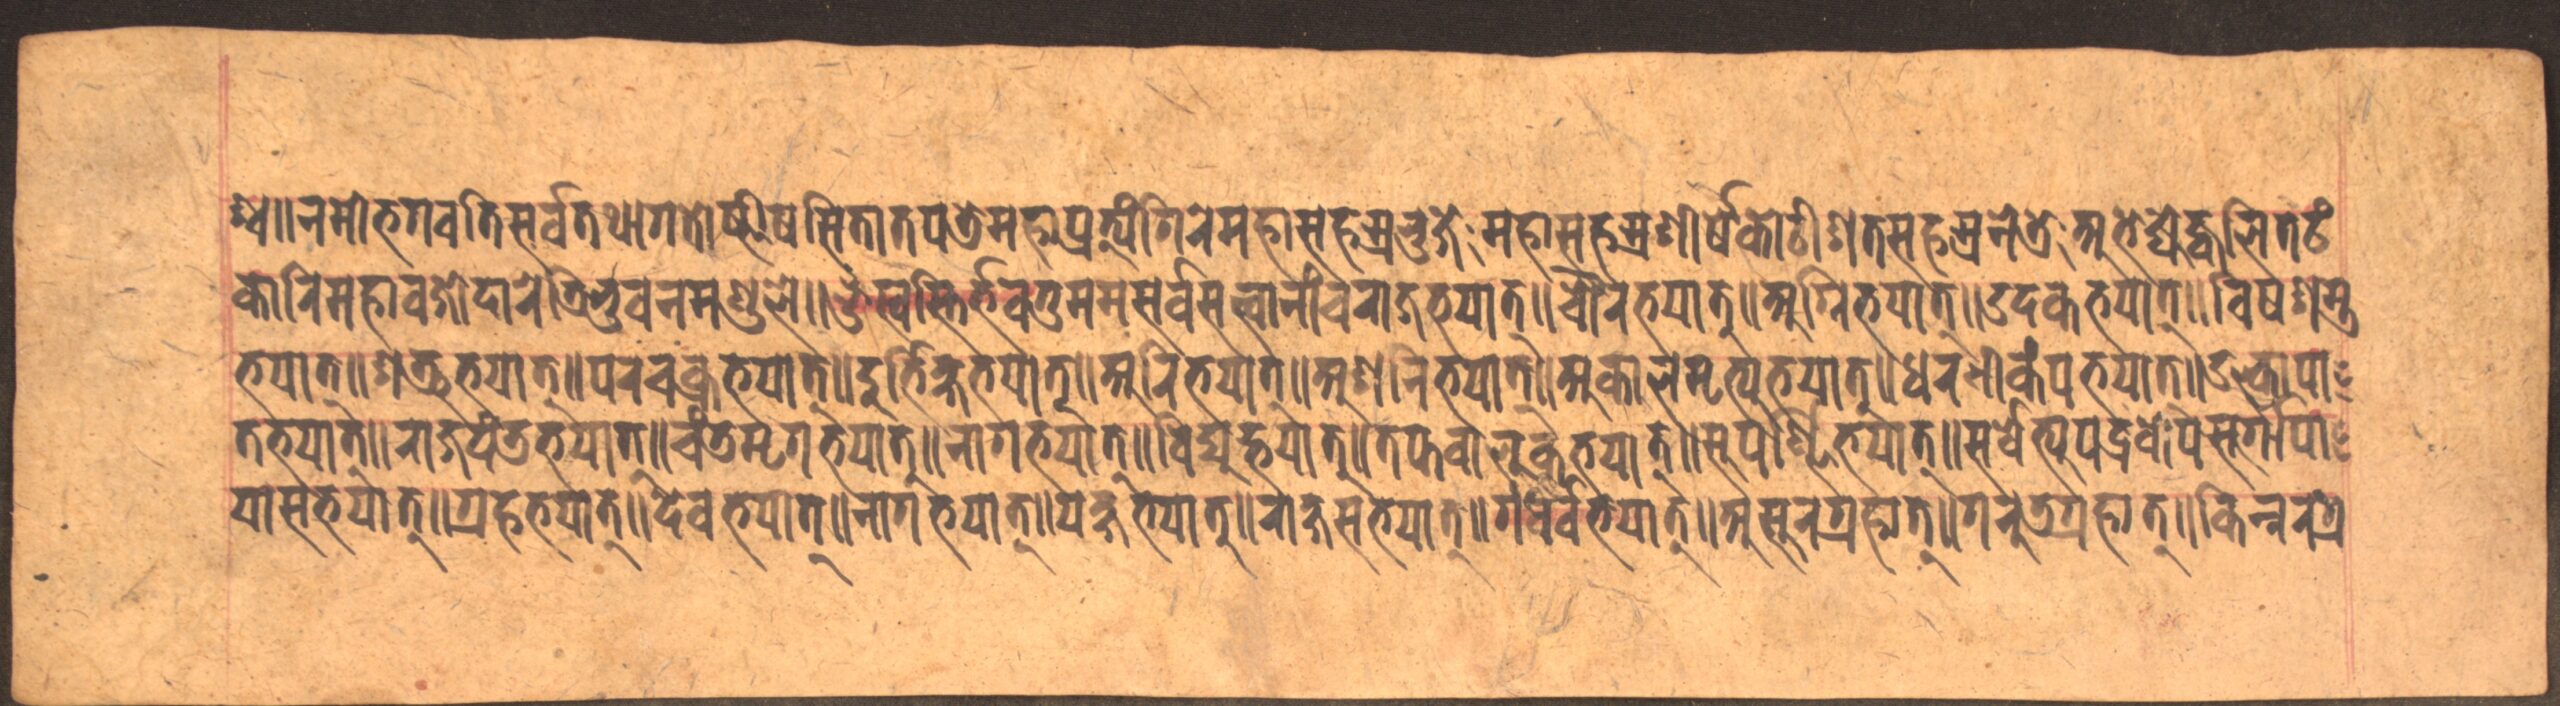 श्च॥नमोभगवतिसर्वतथागतोष्णीषसितातपत्रेमहाप्रत्यंगिरेमहासहस्रभुजे महासहस्रशीर्षेकोटीशतसहस्रनेत्रे अभेद्येज्वलितटं
कारिमहावज्रोदारेत्रिभुवनमण्डले॥ॐस्वस्तिर्भवतुममसर्वसत्वानांचराजभयात्॥चौरभयात्॥अग्निभयात्॥उदकभयात्॥विषशस्त्र
भयात्॥शत्रुभयात्॥परचक्रभयात्॥दुर्भिक्षभयात्॥अरिभयात्॥अशनिभयात्॥अकालमृत्युभयात्॥धरणीकंपभयात्॥उल्कापा
तभयात्॥राजदंडभयात्॥चंडमृगभयात्॥नागभयात्॥विद्युद्भयात्॥तप्तवालुकभयात्॥सुपर्णिभयात्॥सर्वेत्युपद्रवोपसर्गोपा
यासभयात्॥ग्रहभयात्॥देवभयात्॥नागभयात्॥यक्षभयात्॥राक्षसभयात्॥गंधर्वभयात्॥असुरग्रहात्॥गरुडग्रहात्॥किन्नरग्र